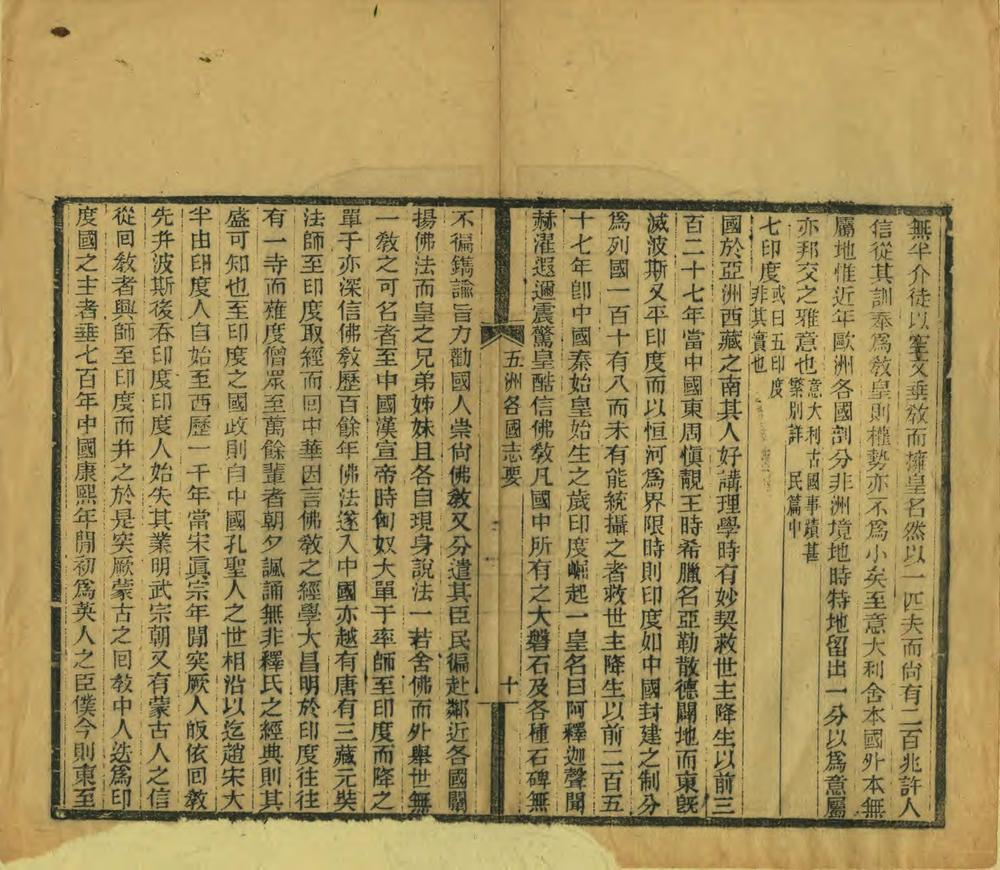 無半介徒以空文垂敎而擁皇名然以一匹夫而尙有二百兆許人
信從其訓奉爲敎皇則權勢亦不爲小矣至意大利舍本國外本無
屬地惟近年歐洲各國剖分非洲境地時特地留出一分以爲意屬
亦邦交之雅意也意大利古國事蹟甚
繁別詳 民篇中
七印度或曰五印度
非其實也
國於亞洲西藏之南其人好講理學時有妙契救世主降生以前三
百二十七年當中國東周愼靚王時希臘名亞勒散德闢地而東旣
滅波斯又平印度而以恒河爲界限時則印度如中國封建之制分
爲列國一百十有八而未有能統攝之者救世主降生以前二百五
十七年卽中國秦始皇始生之歲印度崛起一皇名曰阿釋迦聲聞
赫濯遐邇震驚皇酷信佛敎凡國中所有之大磐石及各種石碑無
五洲各國志要
十
不徧鐫諭旨力勸國人崇尙佛敎又分遣其臣民徧赴鄰近各國闡
揚佛法而皇之兄弟姊妹且各自現身說法一若舍佛而外舉世無
一敎之可名者至中國漢宣帝時匈奴大單于率師至印度而降之
單于亦深信佛敎歷百餘年佛法遂入中國亦越有唐有三藏元奘
法師至印度取經而回中華因言佛敎之經學大昌明於印度往往
有一寺而薙度僧眾至萬餘輩者朝夕諷誦無非釋氏之經典則其
盛可知也至印度之國政則自中國孔聖人之世相沿以迄趙宋大
半由印度人自始至西歷一千年當宋眞宗年間突厥人皈依回敎
先幷波斯後吞印度印度人始失其業明武宗朝又有蒙古人之信
從回敎者興師至印度而幷之於是突厥蒙古之回敎中人迭爲印
度國之主者垂七百年中國康熙年間初爲英人之臣僕今則東至